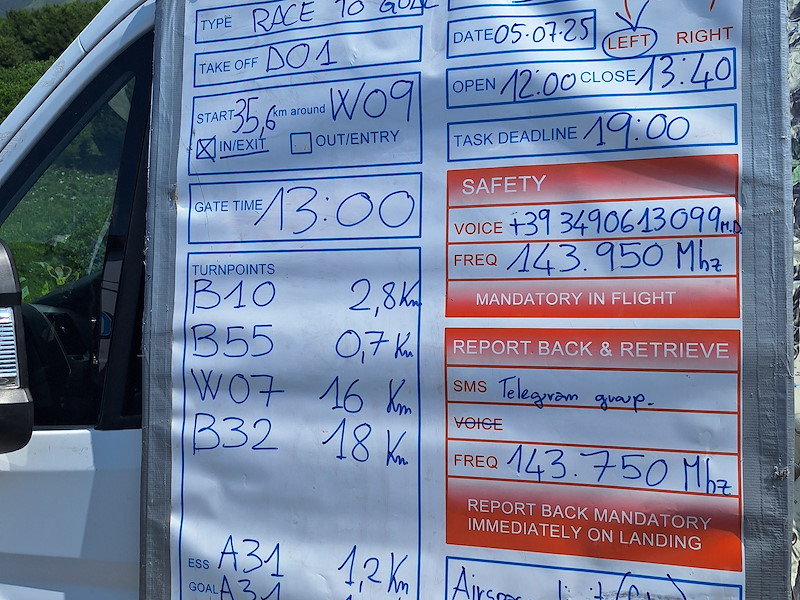 TYPE RACE TO GOAL
TAKE OFF D01
START 35,6 km around W09
IN/EXIT OUT/ENTRY
GATE TIME 13:00
TURNPOINTS
B10 2,8 Km
B55 0,7 Km
W07 16 Km
B32 18 Km
ESS A31 1,2 Km
GOAL A31
DATE 05.07.25
LEFT RIGHT
OPEN 12:00 CLOSE 13:40
TASK DEADLINE 19:00
SAFETY
VOICE +39 3490613099 M.D.
FREQ 143.950 Mhz
MANDATORY IN FLIGHT
REPORT BACK & RETRIEVE
SMS Telegram group.
VOICE
FREQ 143.750 Mhz
REPORT BACK MANDATORY
IMMEDIATELY ON LANDING